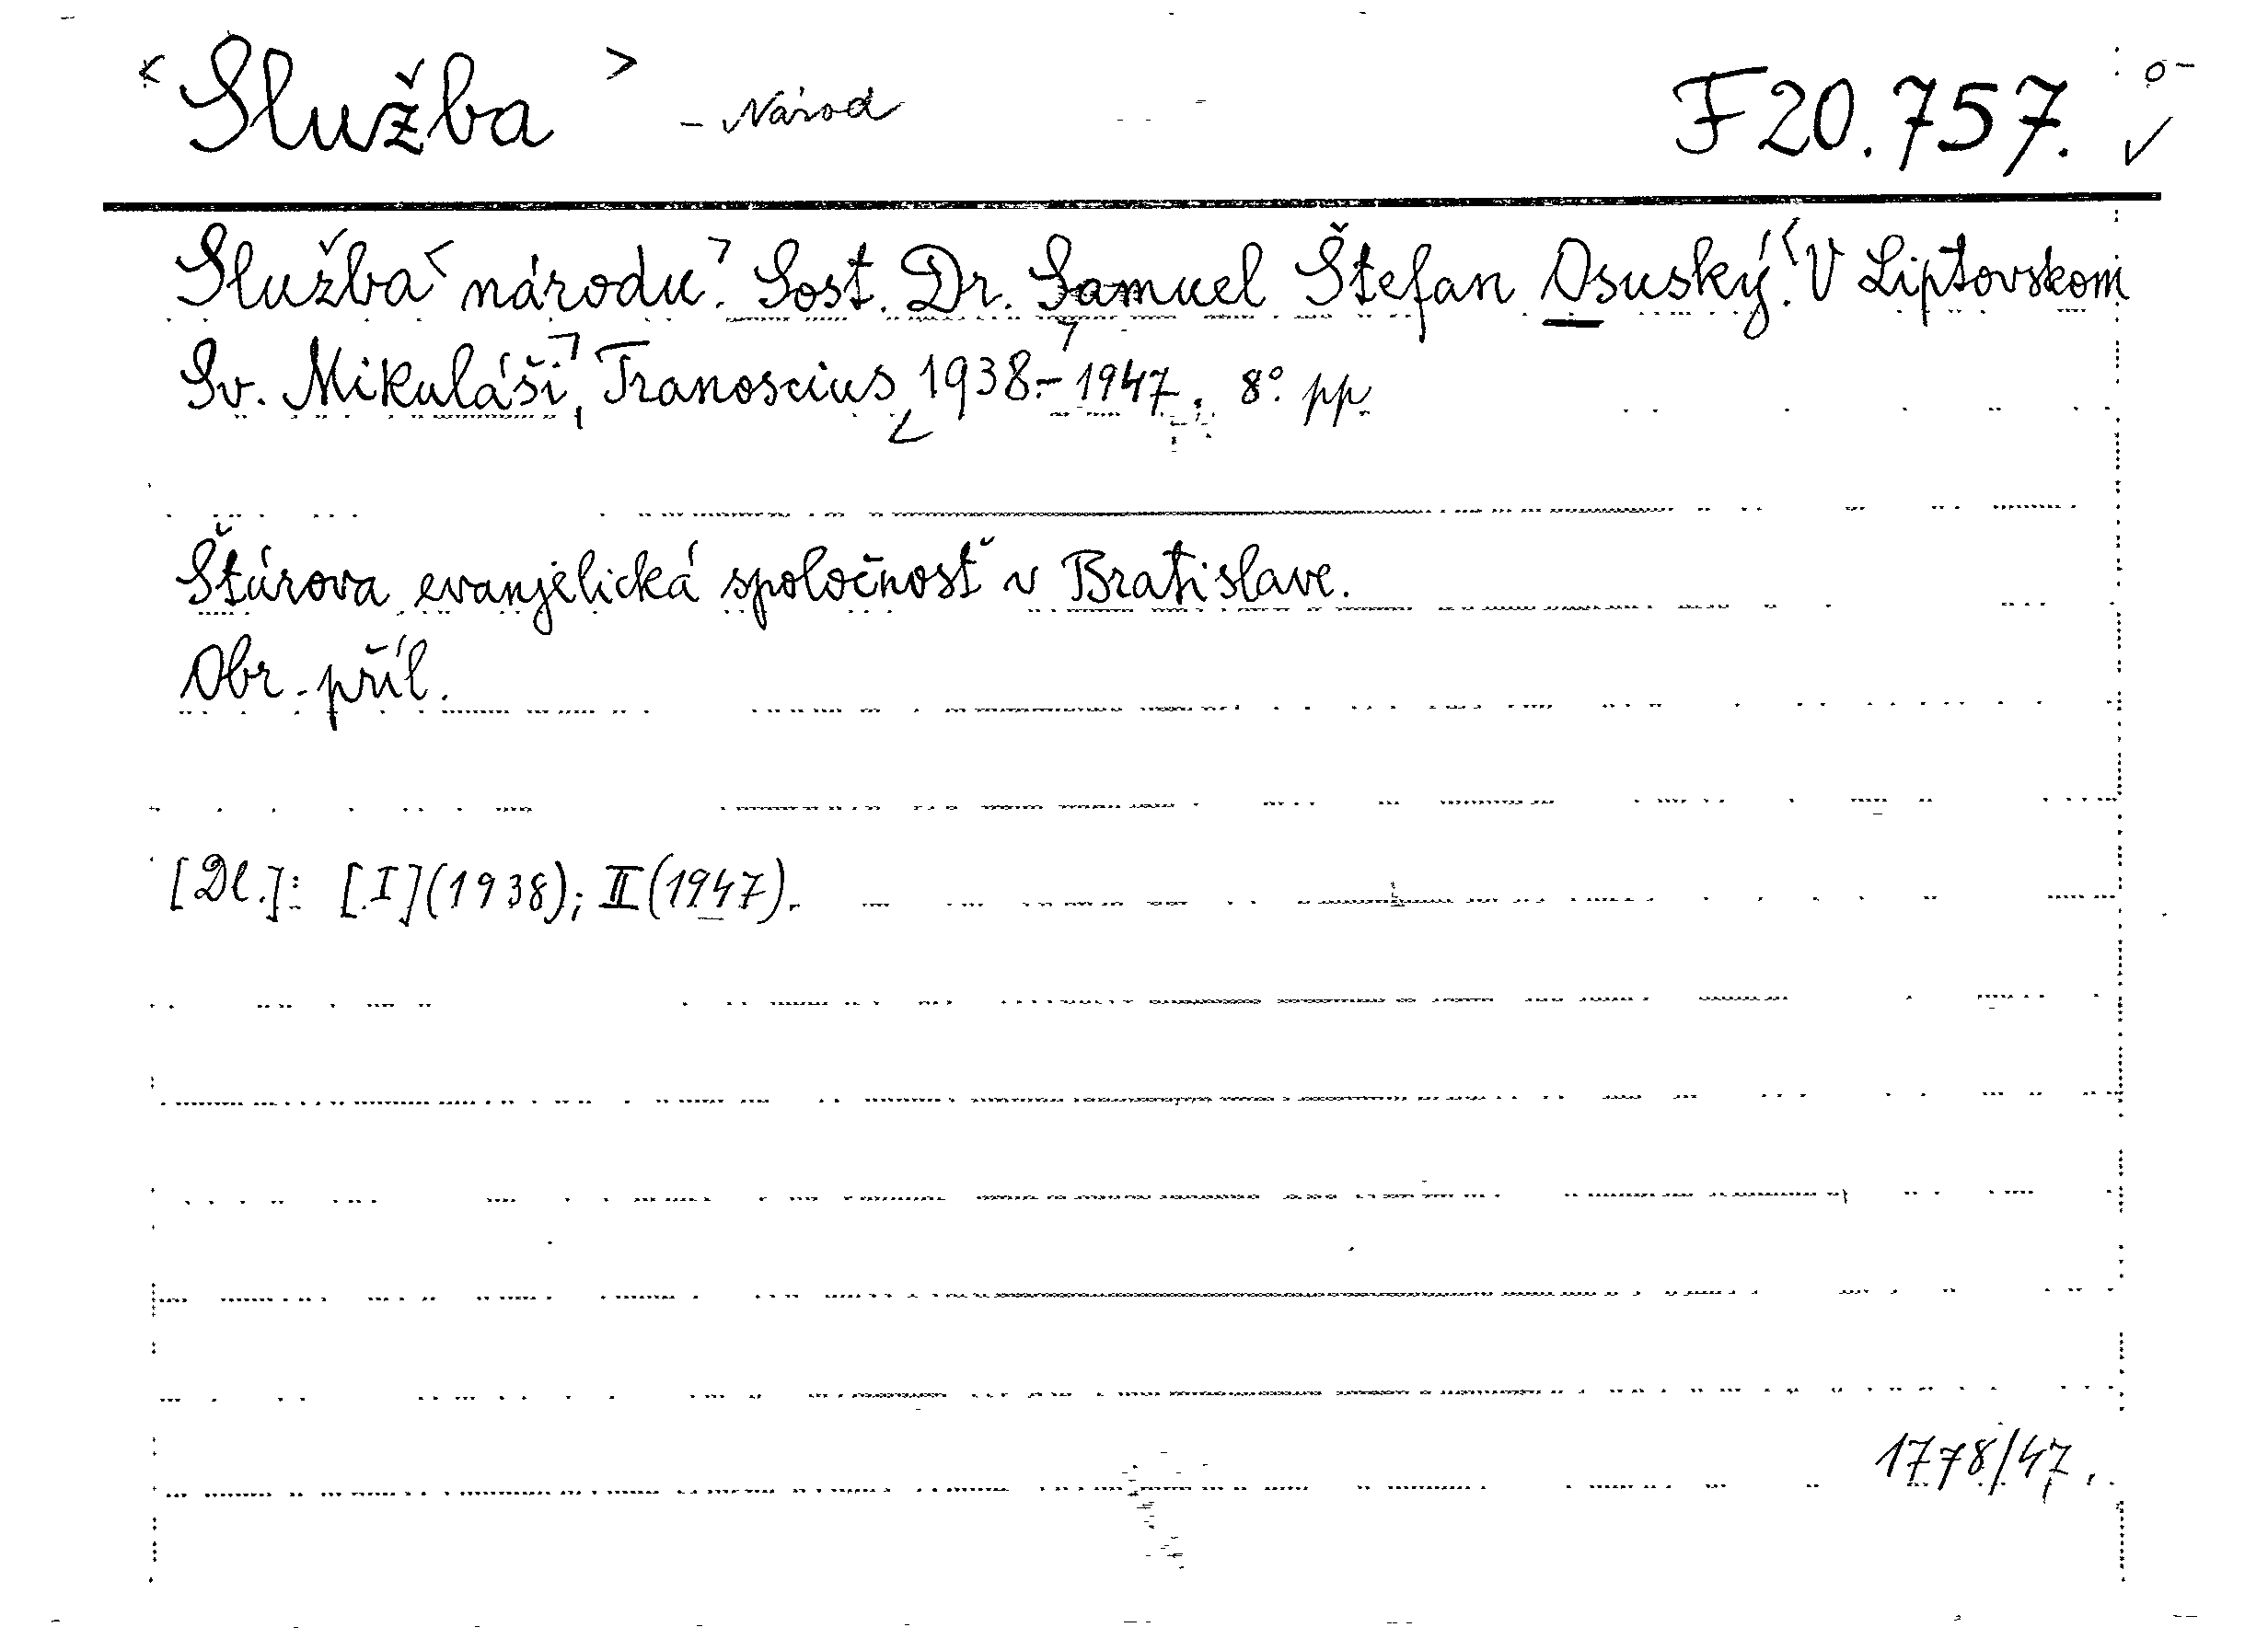 <Služba> - Národ F 20.757.
Služba < národu. > Sost. Dr. Samuel Štefan Osuský. < V Liptovskom
Sv. Mikuláši, Tranoscius 1938.-1947. 8° pp
Štúrova evanjelická spoločnosť v Bratislave.
Obr. příl.
[Dl.]: [I](1938); II(1947).
1778/47.